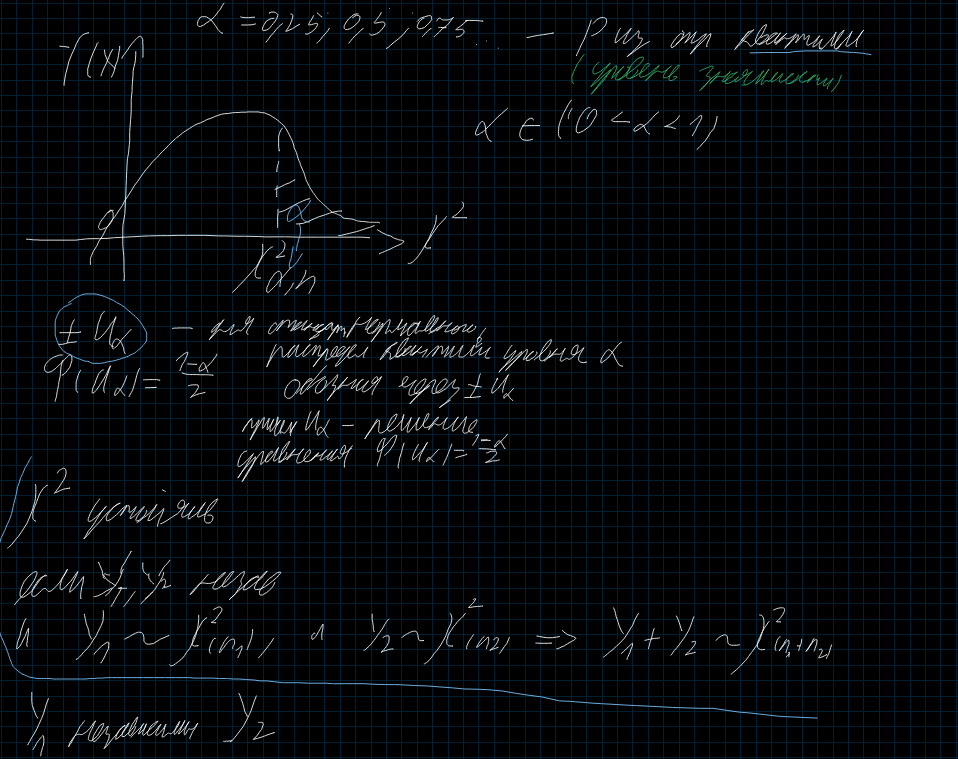 α = 0,25; 0,5; 0,75. – P из отр квантилем
(уровень значимости)
f(x)
α ∈ (0 < α < 1)
0
α
χ²
χ²α,n
± Uα – для стандарт нормального
распредел квантили уровня α
Φ(Uα) = 1-α/2
обознач через ± Uα
причем Uα – решение
уравнения Φ(Uα) = 1-α/2
χ² устойчив
если Y₁, Y₂ незав
и Y₁ ~ χ²(n₁), а Y₂ ~ χ²(n₂) => Y₁ + Y₂ ~ χ²(n₁+n₂)
Y₁ независимы Y₂